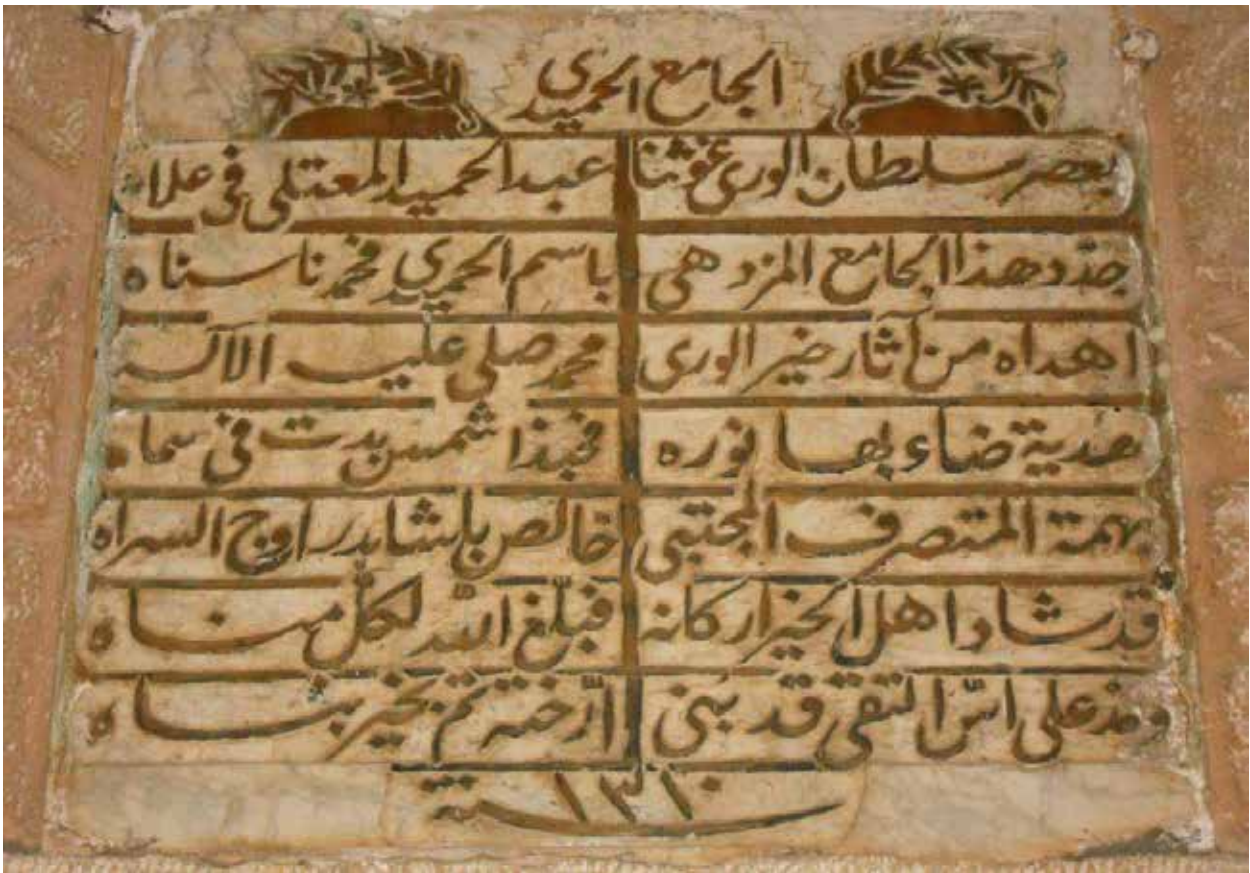 الجامع الحميدي
بعصر سلطان الورى غوثنا عبد الحميد المعتلي في علاه
جدّد هذا الجامع المزدهي باسم الحميدي فخمدنا سناه
اهداه من آثار خير الورى محمد صلى عليه الآله
هدية ضاء بها نوره فحبذا شمس بدت في سماه
بهمة المتصرف المجتبى خالص باشا بدر اوج السراه
قد شاد اهل الخير اركانه فبلّغ الله لكلّ مناه
ومذ على اسّ التقى قد بني ارّخته تم بخير بناه
سنة ١٣١٠